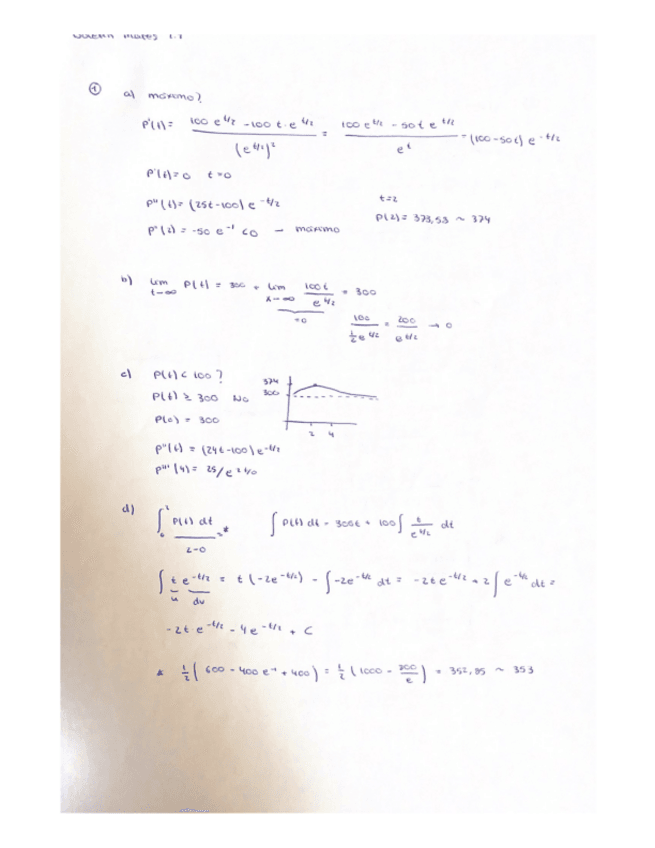 ① a) maximo?
P'(t) = (100 e^{t/2} - 100 t · e^{t/2}) / (e^{t/2})² = (100 e^{t/2} - 50t e^{t/2}) / e^t = (100-50t) e^{-t/2}
P'(t)=0 t=0
P''(t) = (25t-100) e^{-t/2} t=2
P''(2) = -50 e^{-1} <0 → maximo P(2) = 373,53 ~ 374
b) lim t→∞ P(t) = 300 + lim x→∞ 100t / e^{t/2} = 300
=0 100 / ½ e^{t/2} = 200 / e^{t/2} → 0
c) P(t) < 100? 374
P(t) ≥ 300 No 300
P(0) = 300
2 4
P''(t) = (24t-100) e^{-t/2}
P'''(4) = 25/e² ≠0
d) ∫₀² P(t) dt / 2-0 * ∫ P(t) dt = 300t + 100 ∫ t / e^{t/2} dt
∫ t e^{-t/2} = t (-2e^{-t/2}) - ∫ -2e^{-t/2} dt = -2te^{-t/2} + 2 ∫ e^{-t/2} dt =
u dv
-2t · e^{-t/2} - 4e^{-t/2} + C
* ½ (600 - 400 e^{-1} + 400) = ½ (1000 - /e) = 352,85 ~ 353